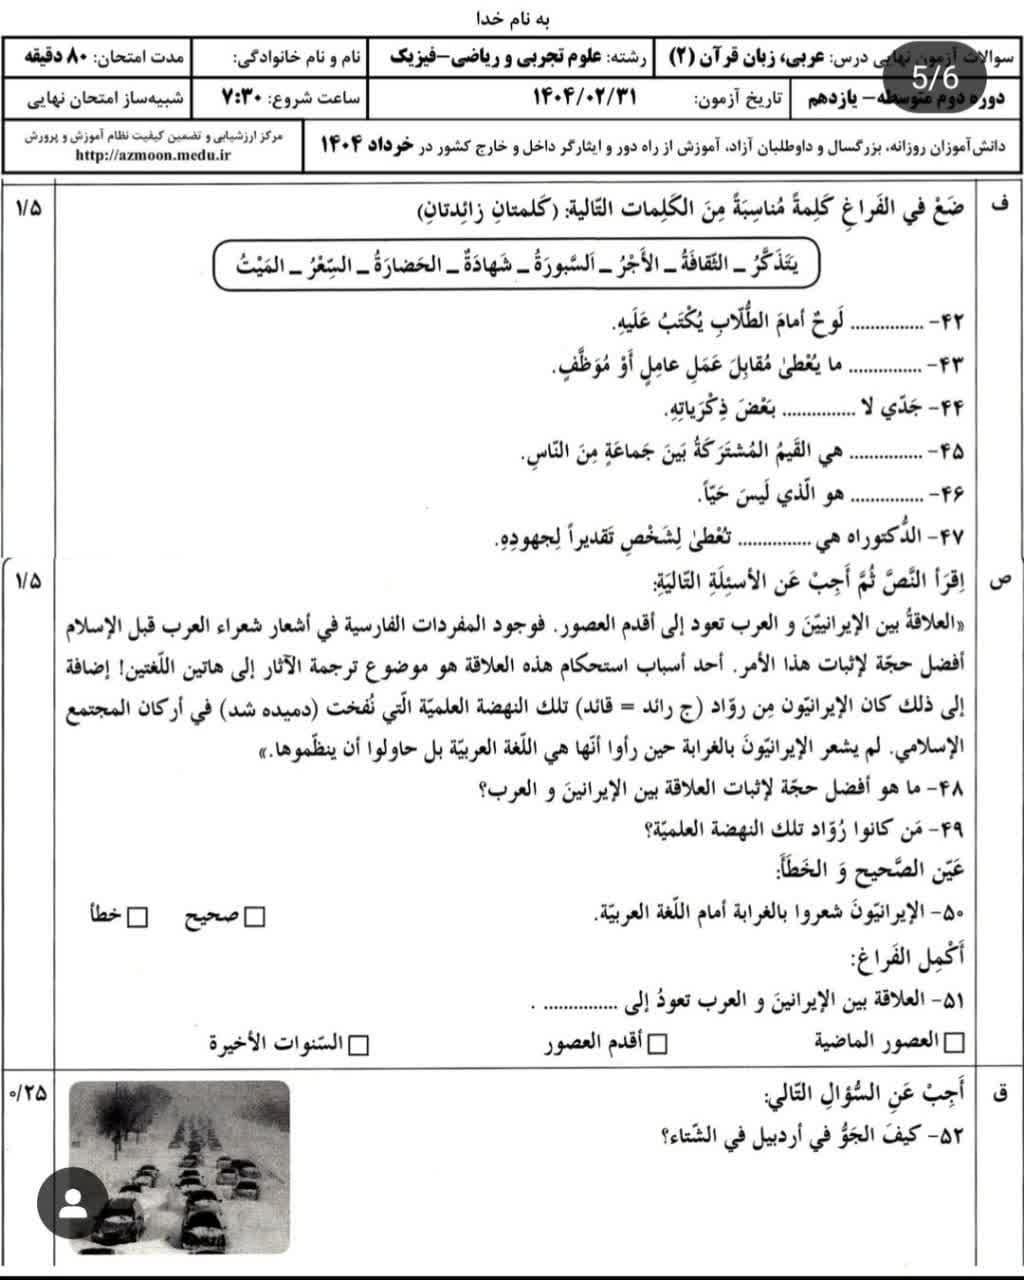 به نام خدا
سوالات آزمون نهایی درس: عربی، زبان قرآن (۲) رشته: علوم تجربی و ریاضی-فیزیک نام و نام خانوادگی: مدت امتحان: ۸۰ دقیقه
دوره دوم متوسطه- یازدهم تاریخ آزمون: ۱۴۰۴/۰۲/۳۱ ساعت شروع: ۷:۳۰ شبیه‌ساز امتحان نهایی
5/6
دانش‌آموزان روزانه، بزرگسال و داوطلبان آزاد، آموزش از راه دور و ایثارگر داخل و خارج کشور در خرداد ۱۴۰۴ مرکز ارزشیابی و تضمین کیفیت نظام آموزش و پرورش
http://azmoon.medu.ir
ف ضَعْ في الفَراغِ كَلِمةً مُناسِبَةً مِنَ الكَلِمات التّالية: (كَلمتانِ زائِدتانِ) ۱/۵
يَتَذَكَّرُ – الثَّقافَةُ – الأَجْرُ – اَلسَّبورَةُ – شَهادَةٌ – الحَضارَةُ – السِّعْرُ – المَيْتُ
۴۲- ............... لَوحٌ أمامَ الطُّلّابِ يُكْتَبُ عَلَيهِ.
۴۳- ............... ما يُعْطىٰ مُقابِلَ عَمَلِ عامِلٍ أَوْ مُوَظَّفٍ.
۴۴- جَدّي لا ............... بَعْضَ ذِكْرَياتِهِ.
۴۵- ............... هي القَيمُ المُشتَرَكَةُ بَينَ جَماعَةٍ مِنَ النّاسِ.
۴۶- ............... هو الّذي لَيسَ حَيّاً.
۴۷- الدُّكتوراه هي ............... تُعْطىٰ لِشَخْصٍ تَقديراً لِجهودِهِ.
ص اِقرَأ النَّصَّ ثُمَّ أَجِبْ عَن الأسئِلَةِ التّاليَةِ: ۱/۵
«العلاقةُ بين الإيرانيّينَ و العرب تعود إلى أقدم العصور. فوجود المفردات الفارسية في أشعار شعراء العرب قبل الإسلام
أفضل حجّة لإثبات هذا الأمر. أحد أسباب استحكام هذه العلاقة هو موضوع ترجمة الآثار إلى هاتين اللّغتين! إضافة
إلى ذلك كان الإيرانيّون مِن روّاد (ج رائد = قائد) تلك النهضة العلميّة الّتي نُفخت (دمیده شد) في أركان المجتمع
الإسلامي. لم يشعر الإيرانيّونَ بالغرابة حين رأوا أنّها هي اللّغة العربيّة بل حاولوا أن ينظّموها.»
۴۸- ما هو أفضل حجّة لإثبات العلاقة بين الإيرانينَ و العرب؟
۴۹- مَن كانوا رُوّاد تلك النهضة العلميّة؟
عَيّن الصَّحيح وَ الخَطَأَ:
۵۰- الإيرانيّونَ شعروا بالغرابة أمام اللّغة العربيّة. صحيح خطأ
أَكْمِل الفَراغ:
۵۱- العلاقة بين الإيرانينَ و العرب تعودُ إلى ............... .
العصور الماضية أقدم العصور السّنوات الأخيرة
ق أَجِبْ عَنِ السُّؤالِ التّالي: ۰/۲۵
۵۲- كيفَ الجَوُّ في أردبيل في الشّتاء؟